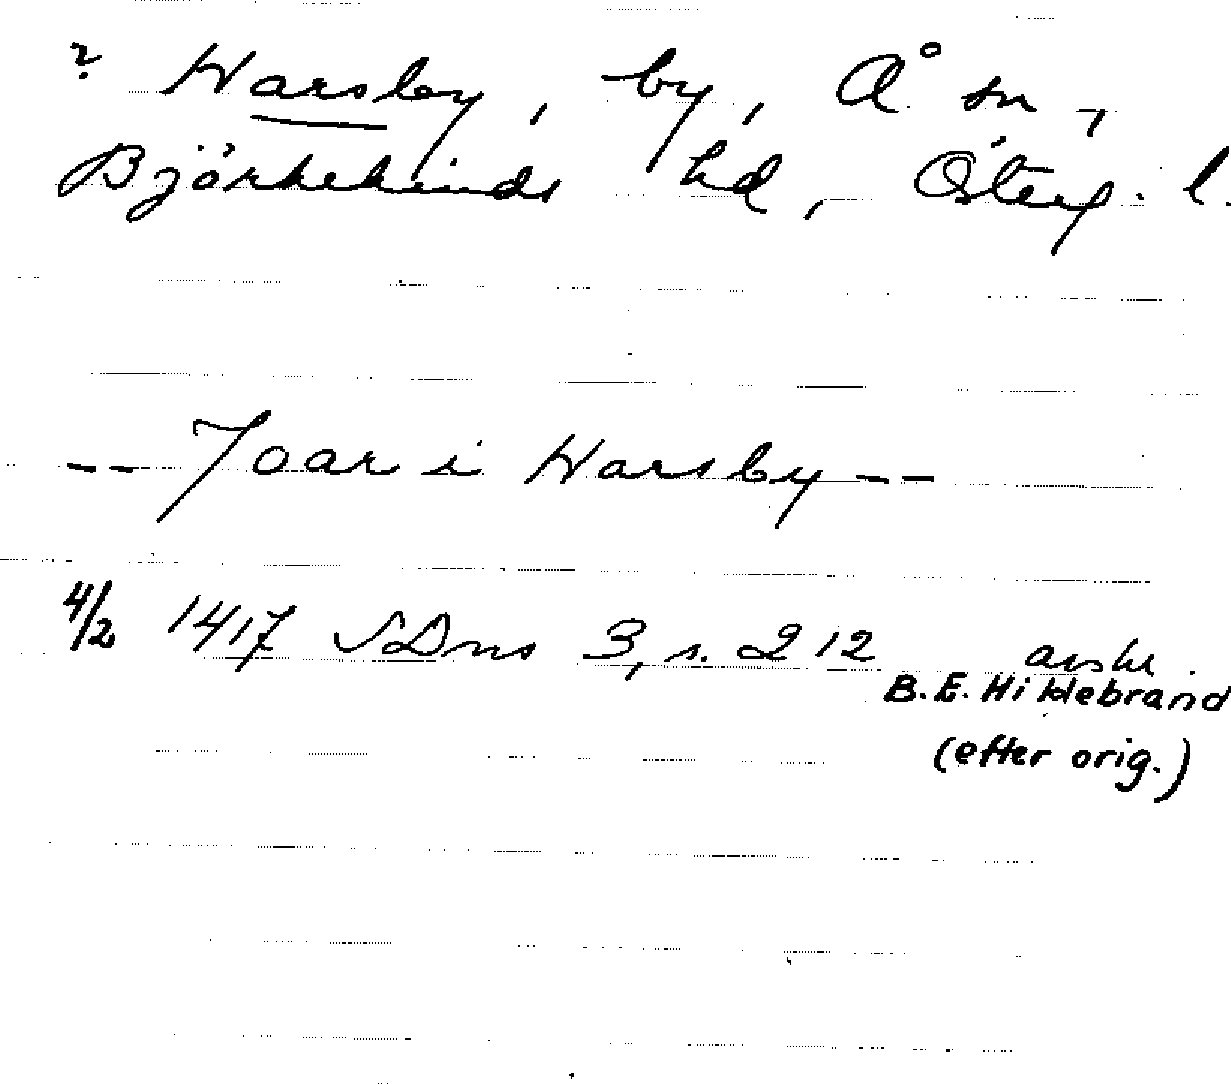 ? Warsby, by, Å sn,
Björkekinds hd, Österg. l.
-- Joar i Warsby --
4/2 1417 SDns 3, s. 212 avskr.
B.E. Hildebrand
(efter orig.)